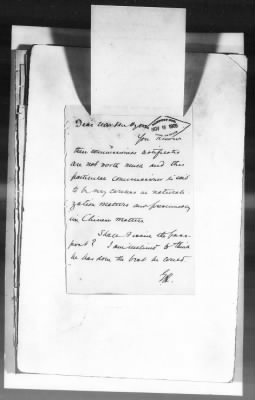 Dear
You know
these commissioners certificates
are not worth much and this
particular commissioner is said
to be very careless in naturali
zation matters and presumably
in Chinese matters
Shall I issue the pass
port? I am inclined to think
he has done the best he could
NOV 18 1905